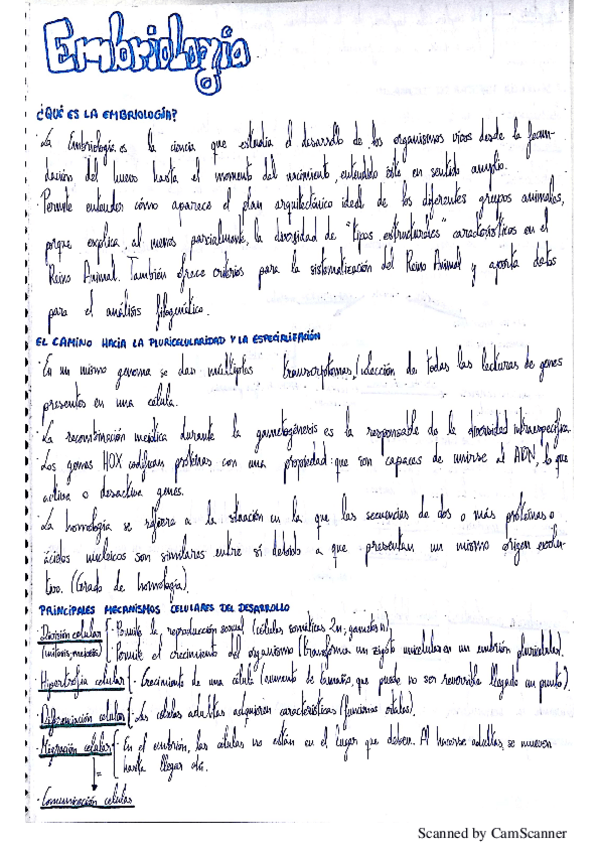 Embriología
¿QUÉ ES LA EMBRIOLOGÍA?
· La Embriología es la ciencia que estudia el desarrollo de los organismos vivos desde la fecun-
dación del huevo hasta el momento del nacimiento, entendido éste en sentido amplio.
Permite entender cómo aparece el plan arquitectónico ideal de los diferentes grupos animales,
porque explica, al menos parcialmente, la diversidad de "tipos estructurales" característicos en el
Reino Animal. También ofrece criterios para la sistematización del Reino Animal y aporta datos
para el análisis filogenético.
EL CAMINO HACIA LA PLURICELULARIDAD Y LA ESPECIALIZACIÓN
· En un mismo genoma se dan múltiples transcriptomas, (colección de todas las lecturas de genes
presentes en una célula.
· La recombinación meiótica durante la gametogénesis es la responsable de la diversidad intraespecífica.
· Los genes HOX codifican proteínas con una propiedad: que son capaces de unirse al ADN, lo que
activa o desactiva genes.
· La homología se refiere a la situación en la que las secuencias de dos o más proteínas o
ácidos nucleicos son similares entre sí debido a que presentan un mismo origen evolu-
tivo. (Grado de homología).
PRINCIPALES MECANISMOS CELULARES DEL DESARROLLO
· División celular {· Permite la reproducción sexual (células somáticas 2n; gametos n)
(mitosis, meiosis) {· Permite el crecimiento del organismo (transforma un zigoto unicelular en un embrión pluricelular).
· Hipertrofia celular {· Crecimiento de una célula (aumento de tamaño, que puede no ser reversible llegado un punto).
· Diferenciación celular {· Las células adultas adquieren características (funciones vitales).
· Migración celular {· En el embrión, las células no están en el lugar que deben. Al hacerse adultas, se mueven
hasta llegar ahí.
· Comunicación celular
Scanned by CamScanner